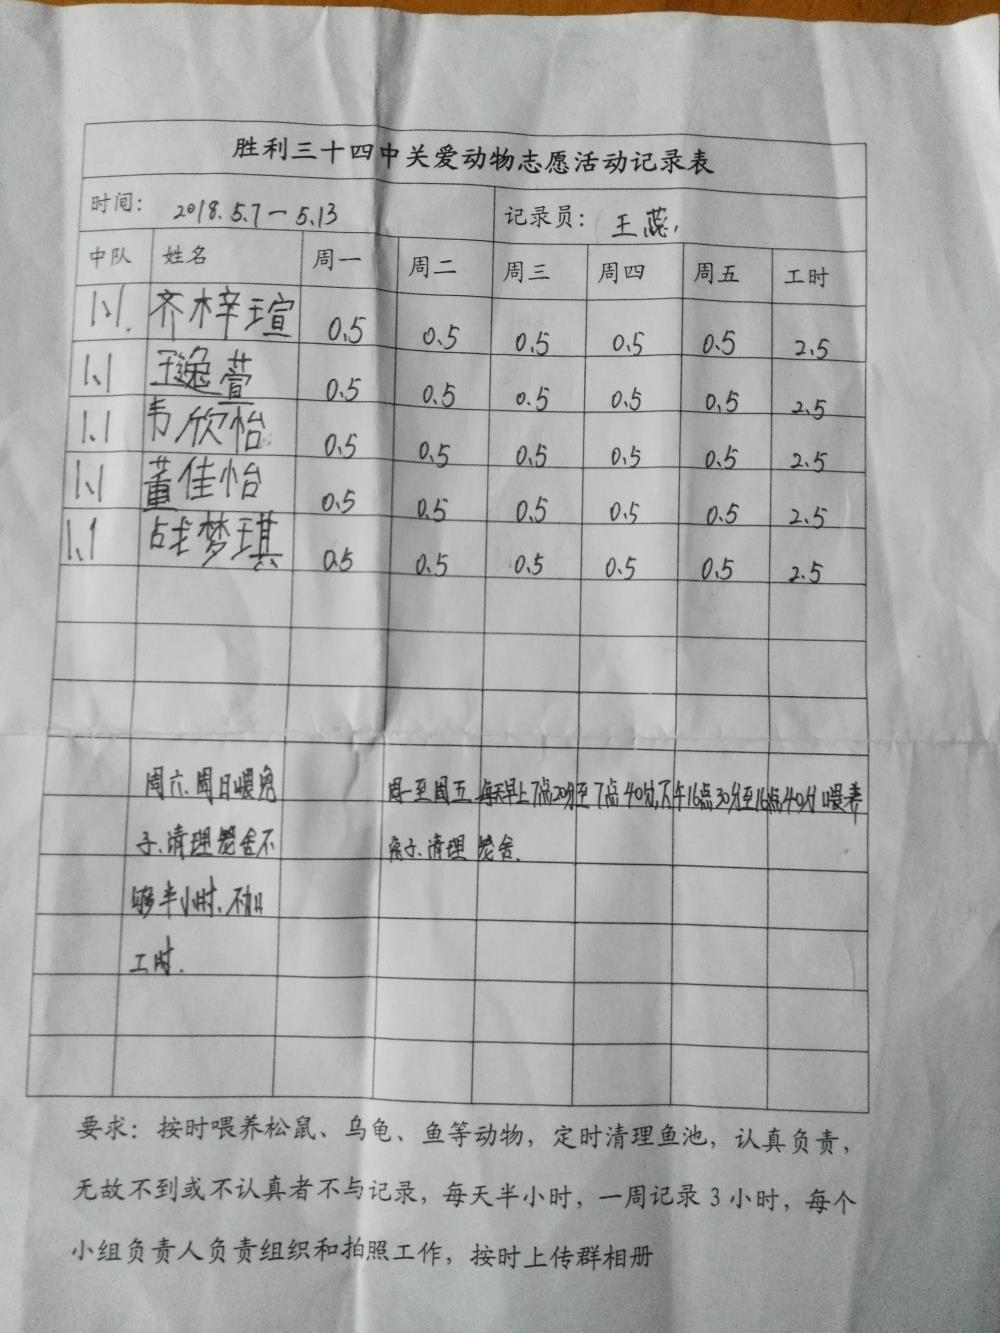 胜利三十四中关爱动物志愿活动记录表
时间： 2018.5.7一5.13 记录员： 王蕊
中队 姓名 周一 周二 周三 周四 周五 工时
1.1. 齐梓瑄 0.5 0.5 0.5 0.5 0.5 2.5
1.1 王逸萱 0.5 0.5 0.5 0.5 0.5 2.5
1.1 韦欣怡 0.5 0.5 0.5 0.5 0.5 2.5
1.1 董佳怡 0.5 0.5 0.5 0.5 0.5 2.5
1.1 战梦琪 0.5 0.5 0.5 0.5 0.5 2.5
周六、周日喂兔 周一至周五 每天早上7点20分至7点40分,下午16点30分至16点40分喂养
子、清理笼舍不 兔子、清理笼舍.
够半小时、不加
工时.
要求：按时喂养松鼠、乌龟、鱼等动物，定时清理鱼池，认真负责，
无故不到或不认真者不与记录，每天半小时，一周记录3小时，每个
小组负责人负责组织和拍照工作，按时上传群相册